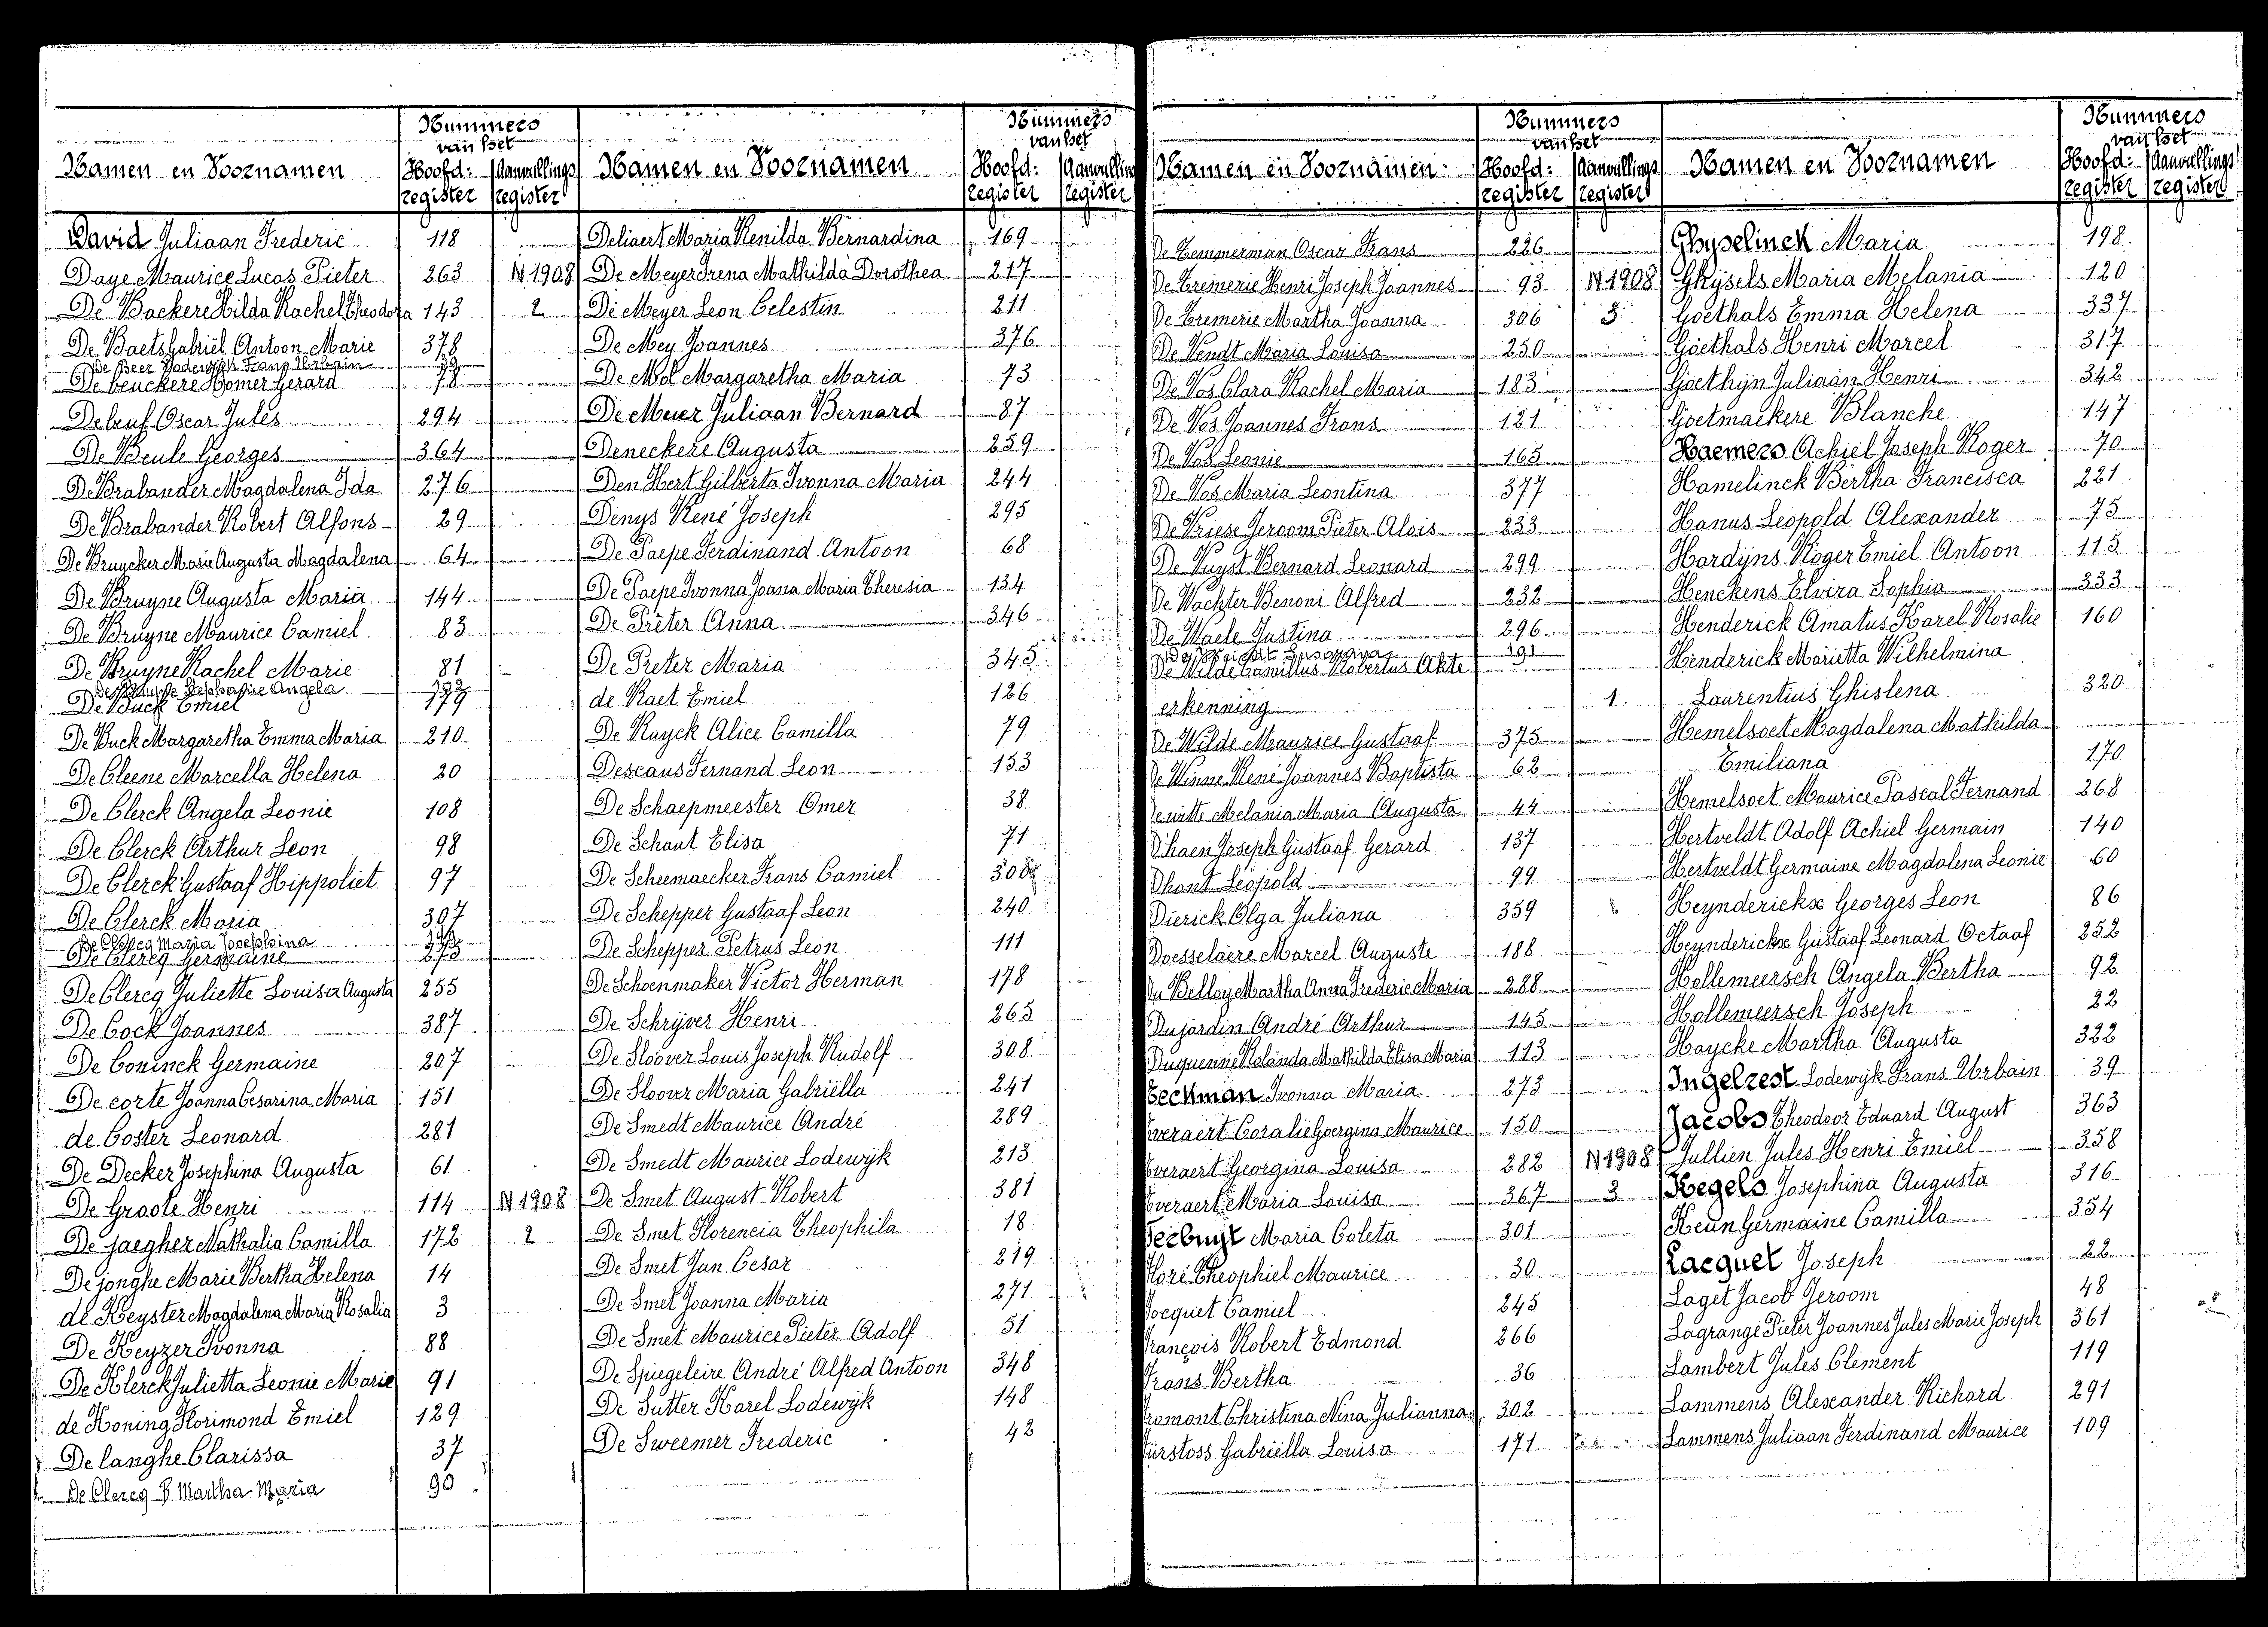 Nummers
van het
Namen en Voornamen Hoofd: register Aanvullings register
David Juliaan Frederic 118
Daye Maurice Lucas Pieter 263 N 1908
De Backere Hilda Rachel Theodora 143 2
De Baets Gabriël Antoon Marie 378
De Beer Lodewijk Frans Urbain 39
De beuckere Homer Gerard 78
Debeuf Oscar Jules 294
De Beule Georges 364
De Brabander Magdalena Ida 276
De Brabander Robert Alfons 29
De Bruycker Marie Augusta Magdalena 64
De Bruyne Augusta Maria 144
De Bruyne Maurice Camiel 83
De Bruyne Rachel Marie 81
Stephanie Angela
De Buck Emiel 179
De Buck Margaretha Emma Maria 210
De Cleene Marcella Helena 20
De Clerck Angela Leonie 108
De Clerck Arthur Leon 98
De Clerck Gustaaf Hippoliet 97
De Clerck Maria 307
De Clercq Maria Josephina
De Clercq Germaine 275
De Clercq Juliette Louisa Augusta 255
De Cock Joannes 387
De Coninck Germaine 207
De corte Joanna Cesarina Maria 151
de Coster Leonard 281
De Decker Josephina Augusta 61
De Groote Henri 114 N 1908
De jaegher Nathalia Camilla 172 2
De jonghe Marie Bertha Helena 14
de Keyster Magdalena Maria Rosalia 3
De Keyzer Ivonna 88
De Klerck Julietta Leonie Marie 91
de Koning Florimond Emiel 129
De langhe Clarissa 37
De Clercq B Martha Maria 90
Nummers
van het
Namen en Voornamen Hoofd: register Aanvulling register
Deliaert Maria Renilda Bernardina 169
De Meyer Irena Mathilda Dorothea 217
De Meyer Leon Celestin 211
De Mey Joannes 376
De Mol Margaretha Maria 73
De Muer Juliaan Bernard 87
Deneckere Augusta 259
Den Hert Gilberta Ivonna Maria 244
Denys René Joseph 295
De Paepe Ferdinand Antoon 68
De Paepe Ivonna Joana Maria Theresia 134
De Prêter Anna 346
De Preter Maria 345
de Raet Emiel 126
De Ruyck Alice Camilla 79
Descaus Fernand Leon 153
De Schaepmeester Omer 38
De Schaut Elisa 71
De Scheemaecker Frans Camiel 300
De Schepper Gustaaf Leon 240
De Schepper Petrus Leon 111
De Schoenmaker Victor Herman 178
De Schrijver Henri 265
De Sloover Louis Joseph Rudolf 308
De Sloover Maria Gabriëlla 241
De Smedt Maurice André 289
De Smedt Maurice Lodewijk 213
De Smet August Robert 381
De Smet Florencia Theophila 18
De Smet Jan Cesar 219
De Smet Joanna Maria 271
De Smet Maurice Pieter Adolf 51
De Spiegeleire André Alfred Antoon 348
De Sutter Karel Lodewijk 148
De Sweemer Frederic 42
Nummers
van het
Namen en Voornamen Hoofd: register Aanvullings register
De Temmerman Oscar Frans 226
De Tremerie Henri Joseph Joannes 93 N 1908
De Tremerie Martha Joanna 306 3
De Vendt Maria Louisa 250
De Vos Clara Rachel Maria 183
De Vos Joannes Frans 121
De Vos Leonie 165
De Vos Maria Leontina 377
De Vriese Jeroom Pieter Alois 233
De Vuyst Bernard Leonard 299
De Wachter Benoni Alfred 232
De Waele Justina 296
Susanna 191
De Wilde Camillus Robertus Akte
erkenning 1
De Wilde Maurice Gustaaf 375
De Winne René Joannes Baptista 62
ewitte Melania Maria Augusta 44
D'haen Joseph Gustaaf Gerard 137
Dhont Leopold 99
Dierick Olga Juliana 359
Doesselaere Marcel Auguste 188
Du Belloy Martha Anna Frederic Maria 288
Dujardin André Arthur 145
Duquenne Rolanda Mathilda Elisa Maria 113
Eeckman Ivonna Maria 273
Everaert Coralie Goergina Maurice 150
Everaert Georgina Louisa 282 N 1908
Everaert Maria Louisa 367 3
Feebuyt Maria Coleta 301
Floré Theophiel Maurice 30
Focquet Camiel 245
François Robert Edmond 266
Frans Bertha 36
Fromont Christina Nina Julianna 302
Fürstoss Gabriëlla Louisa 171
Nummers
van het
Namen en Voornamen Hoofd: register Aanvullings register
Ghyselinck Maria 198
Ghijsels Maria Melania 120
Goethals Emma Helena 337
Goethals Henri Marcel 317
Goethijn Juliaan Henri 342
Goetmaekere Blanche 147
Haemers Achiel Joseph Roger 70
Hamelinck Bertha Francisca 221
Hanus Leopold Alexander 75
Hardijns Roger Emiel Antoon 115
Henckens Elvira Sophia 333
Henderick Amatus Karel Rosalie 160
Henderick Marietta Wilhelmina
Laurentius Ghislena 320
Hemelsoet Magdalena Mathilda
Emiliana 170
Hemelsoet Maurice Pascal Fernand 268
Hertveldt Adolf Achiel Germain 140
Hertveldt Germaine Magdalena Leonie 60
Heynderickx Georges Leon 86
Heynderickx Gustaaf Leonard Octaaf 252
Hollemeersch Angela Bertha 92
Hollemeersch Joseph 22
Hoycke Martha Augusta 322
Ingelrest Lodewijk Frans Urbain 39
Jacobs Theodoor Eduard August 363
Jullien Jules Henri Emiel 358
Kegels Josephina Augusta 316
Keun Germaine Camilla 354
Lacquet Joseph 22
Laget Jacob Jeroom 48
Lagrange Pieter Joannes Jules Marie Joseph 361
Lambert Jules Clément 119
Lammens Alexander Richard 291
Lammens Juliaan Ferdinand Maurice 109